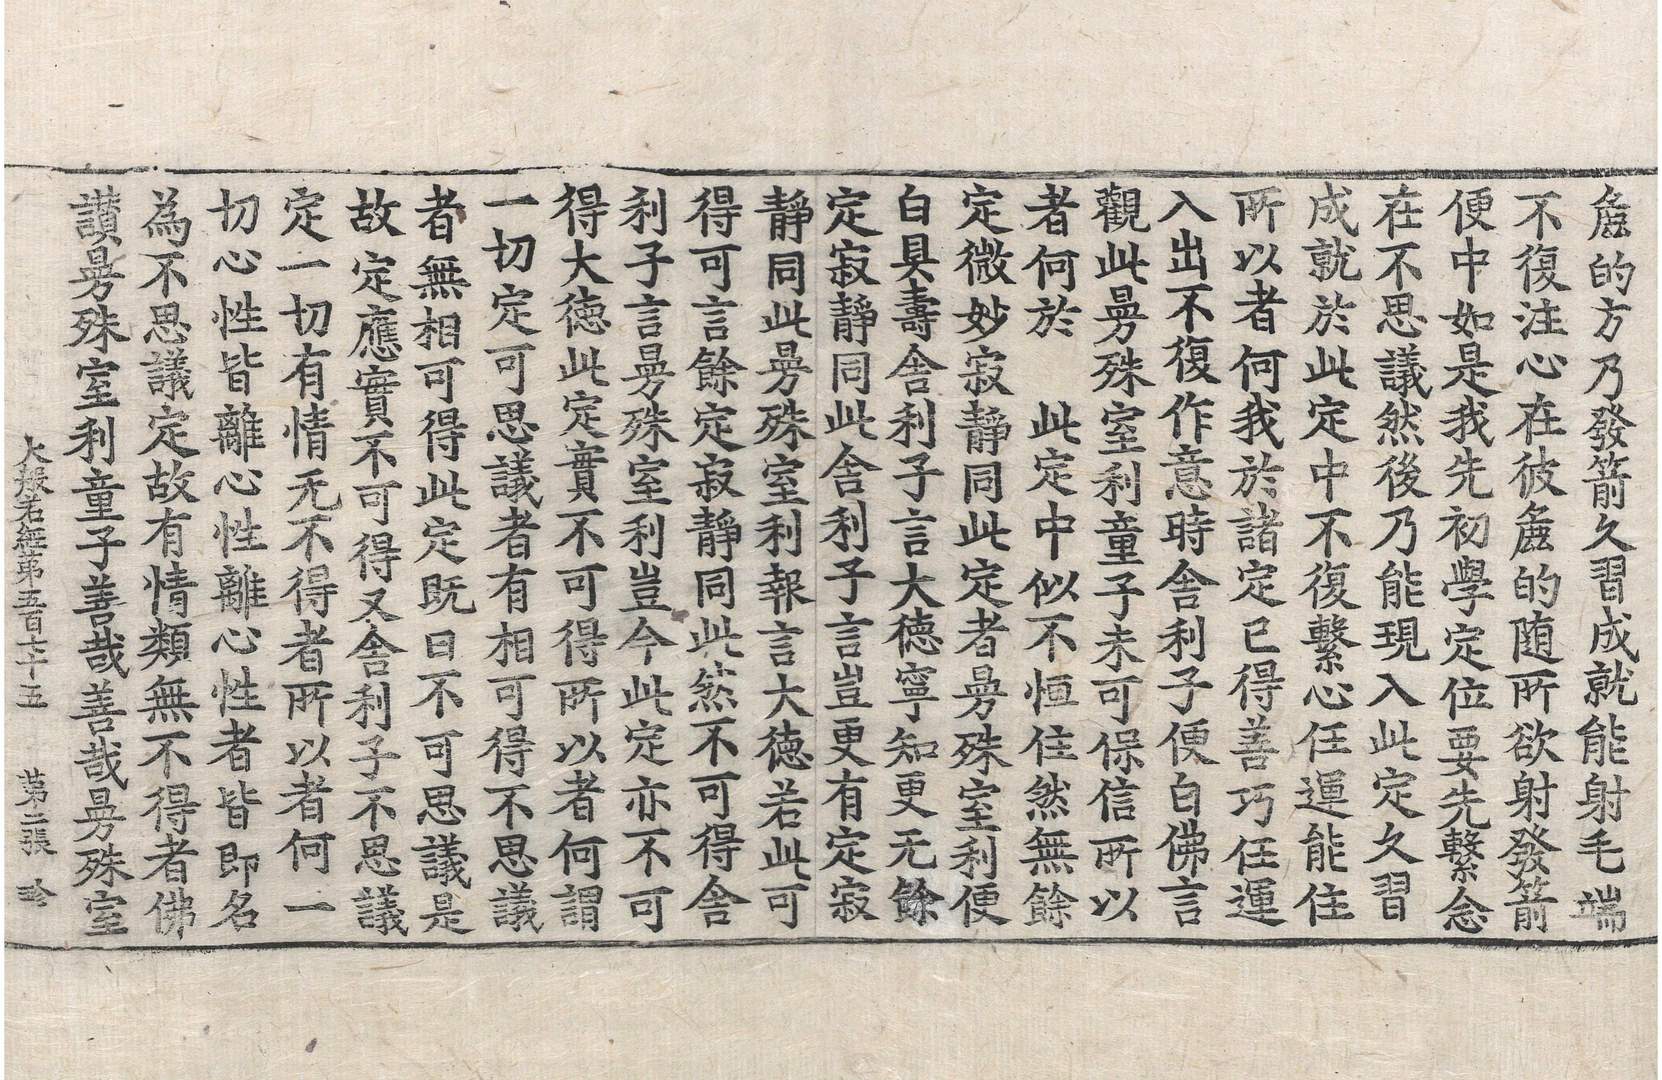 麁的方乃發箭久習成就能射毛端
不復注心在彼麁的随所欲射發箭
便中如是我先初學定位要先繫念
在不思議然後乃能現入此定久習
成就於此定中不復繫心任運能住
所以者何我於諸定已得善巧任運
入出不復作意時舍利子便白佛言
觀此曼殊室利童子未可保信所以
者何於此定中似不恒住然無餘
定微妙寂靜同此定者曼殊室利便
白具壽舍利子言大德寧知更无餘
定寂靜同此舍利子言豈更有定寂
靜同此曼殊室利報言大德若此可
得可言餘定寂靜同此然不可得舍
利子言曼殊室利豈今此定亦不可
得大德此定實不可得所以者何謂
一切定可思議者有相可得不思議
者無相可得此定既曰不可思議是
故定應實不可得又舍利子不思議
定一切有情无不得者所以者何一
切心性皆離心性離心性者皆即名
為不思議定故有情類無不得者佛
讃曼殊室利童子善哉善哉曼殊室
大般若經第五百七十五 苐二張 珎